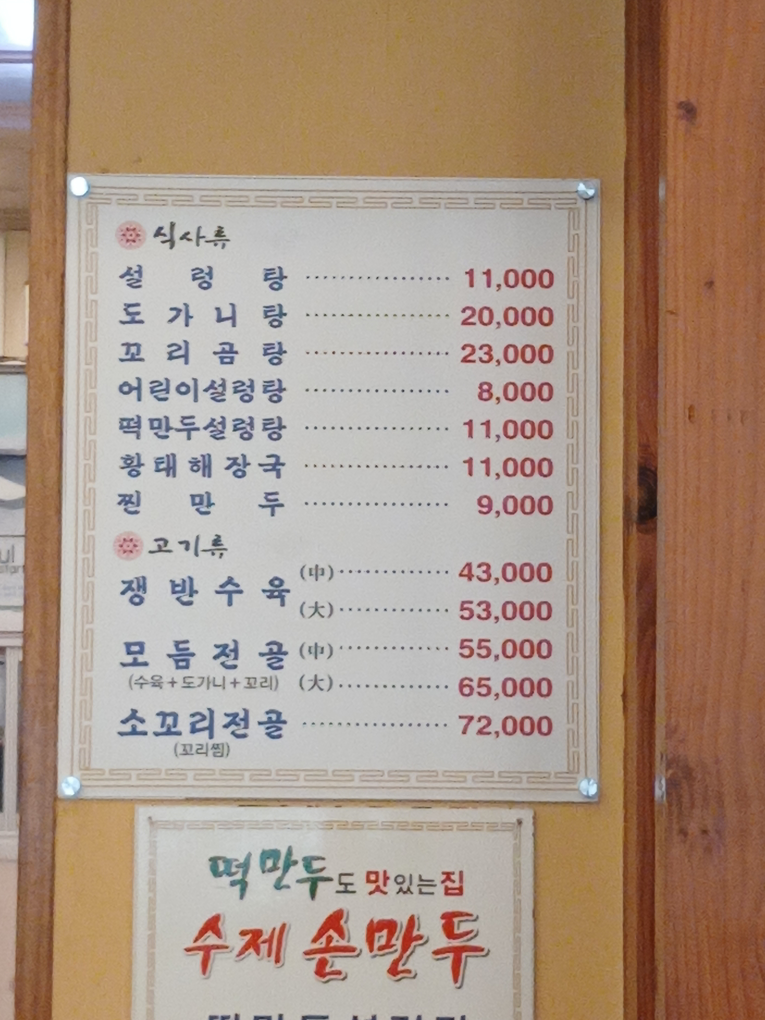 식사류
설렁탕 ⋯⋯⋯⋯⋯⋯ 11,000
도가니탕 ⋯⋯⋯⋯⋯⋯ 20,000
꼬리곰탕 ⋯⋯⋯⋯⋯⋯ 23,000
어린이설렁탕 ⋯⋯⋯⋯⋯⋯ 8,000
떡만두설렁탕 ⋯⋯⋯⋯⋯⋯ 11,000
황태해장국 ⋯⋯⋯⋯⋯⋯ 11,000
찐만두 ⋯⋯⋯⋯⋯⋯ 9,000
고기류
쟁반수육 (中) ⋯⋯⋯⋯ 43,000
(大) ⋯⋯⋯⋯ 53,000
모듬전골 (中) ⋯⋯⋯⋯ 55,000
(수육+도가니+꼬리) (大) ⋯⋯⋯⋯ 65,000
소꼬리전골 ⋯⋯⋯⋯⋯⋯ 72,000
(꼬리찜)
떡만두도 맛있는집
수제 손만두